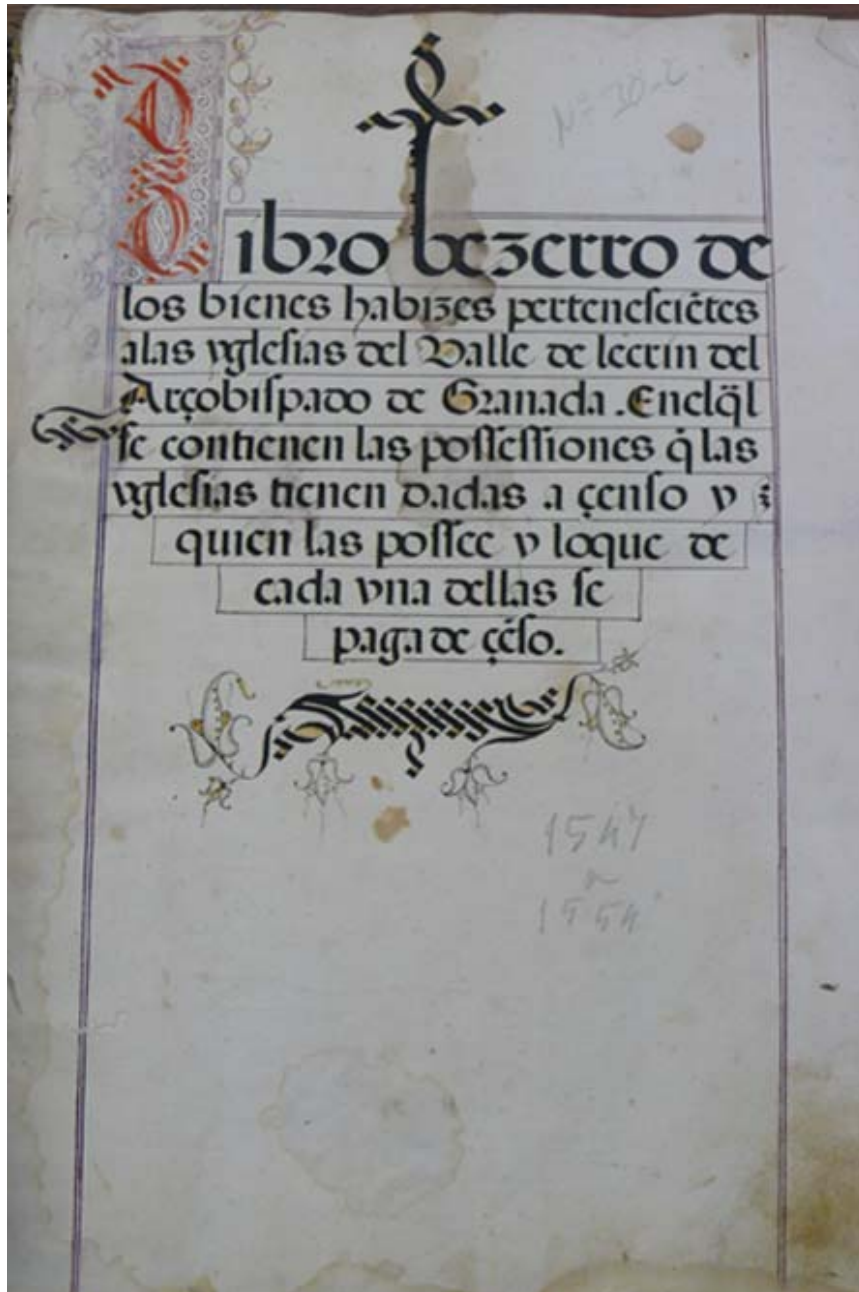 Nº 30-2
Libro bezerro de
los bienes habizes perteneſciẽtes
alas ygleſias del Valle de lecrin del
Arçobiſpado de Granada. Enelq̃l
ſe contienen las poſſeſſiones q̃ las
ygleſias tienen dadas a çenſo y
quien las poſſee y loque de
cada vna dellas ſe
paga de çẽſo.
1547
a
1554